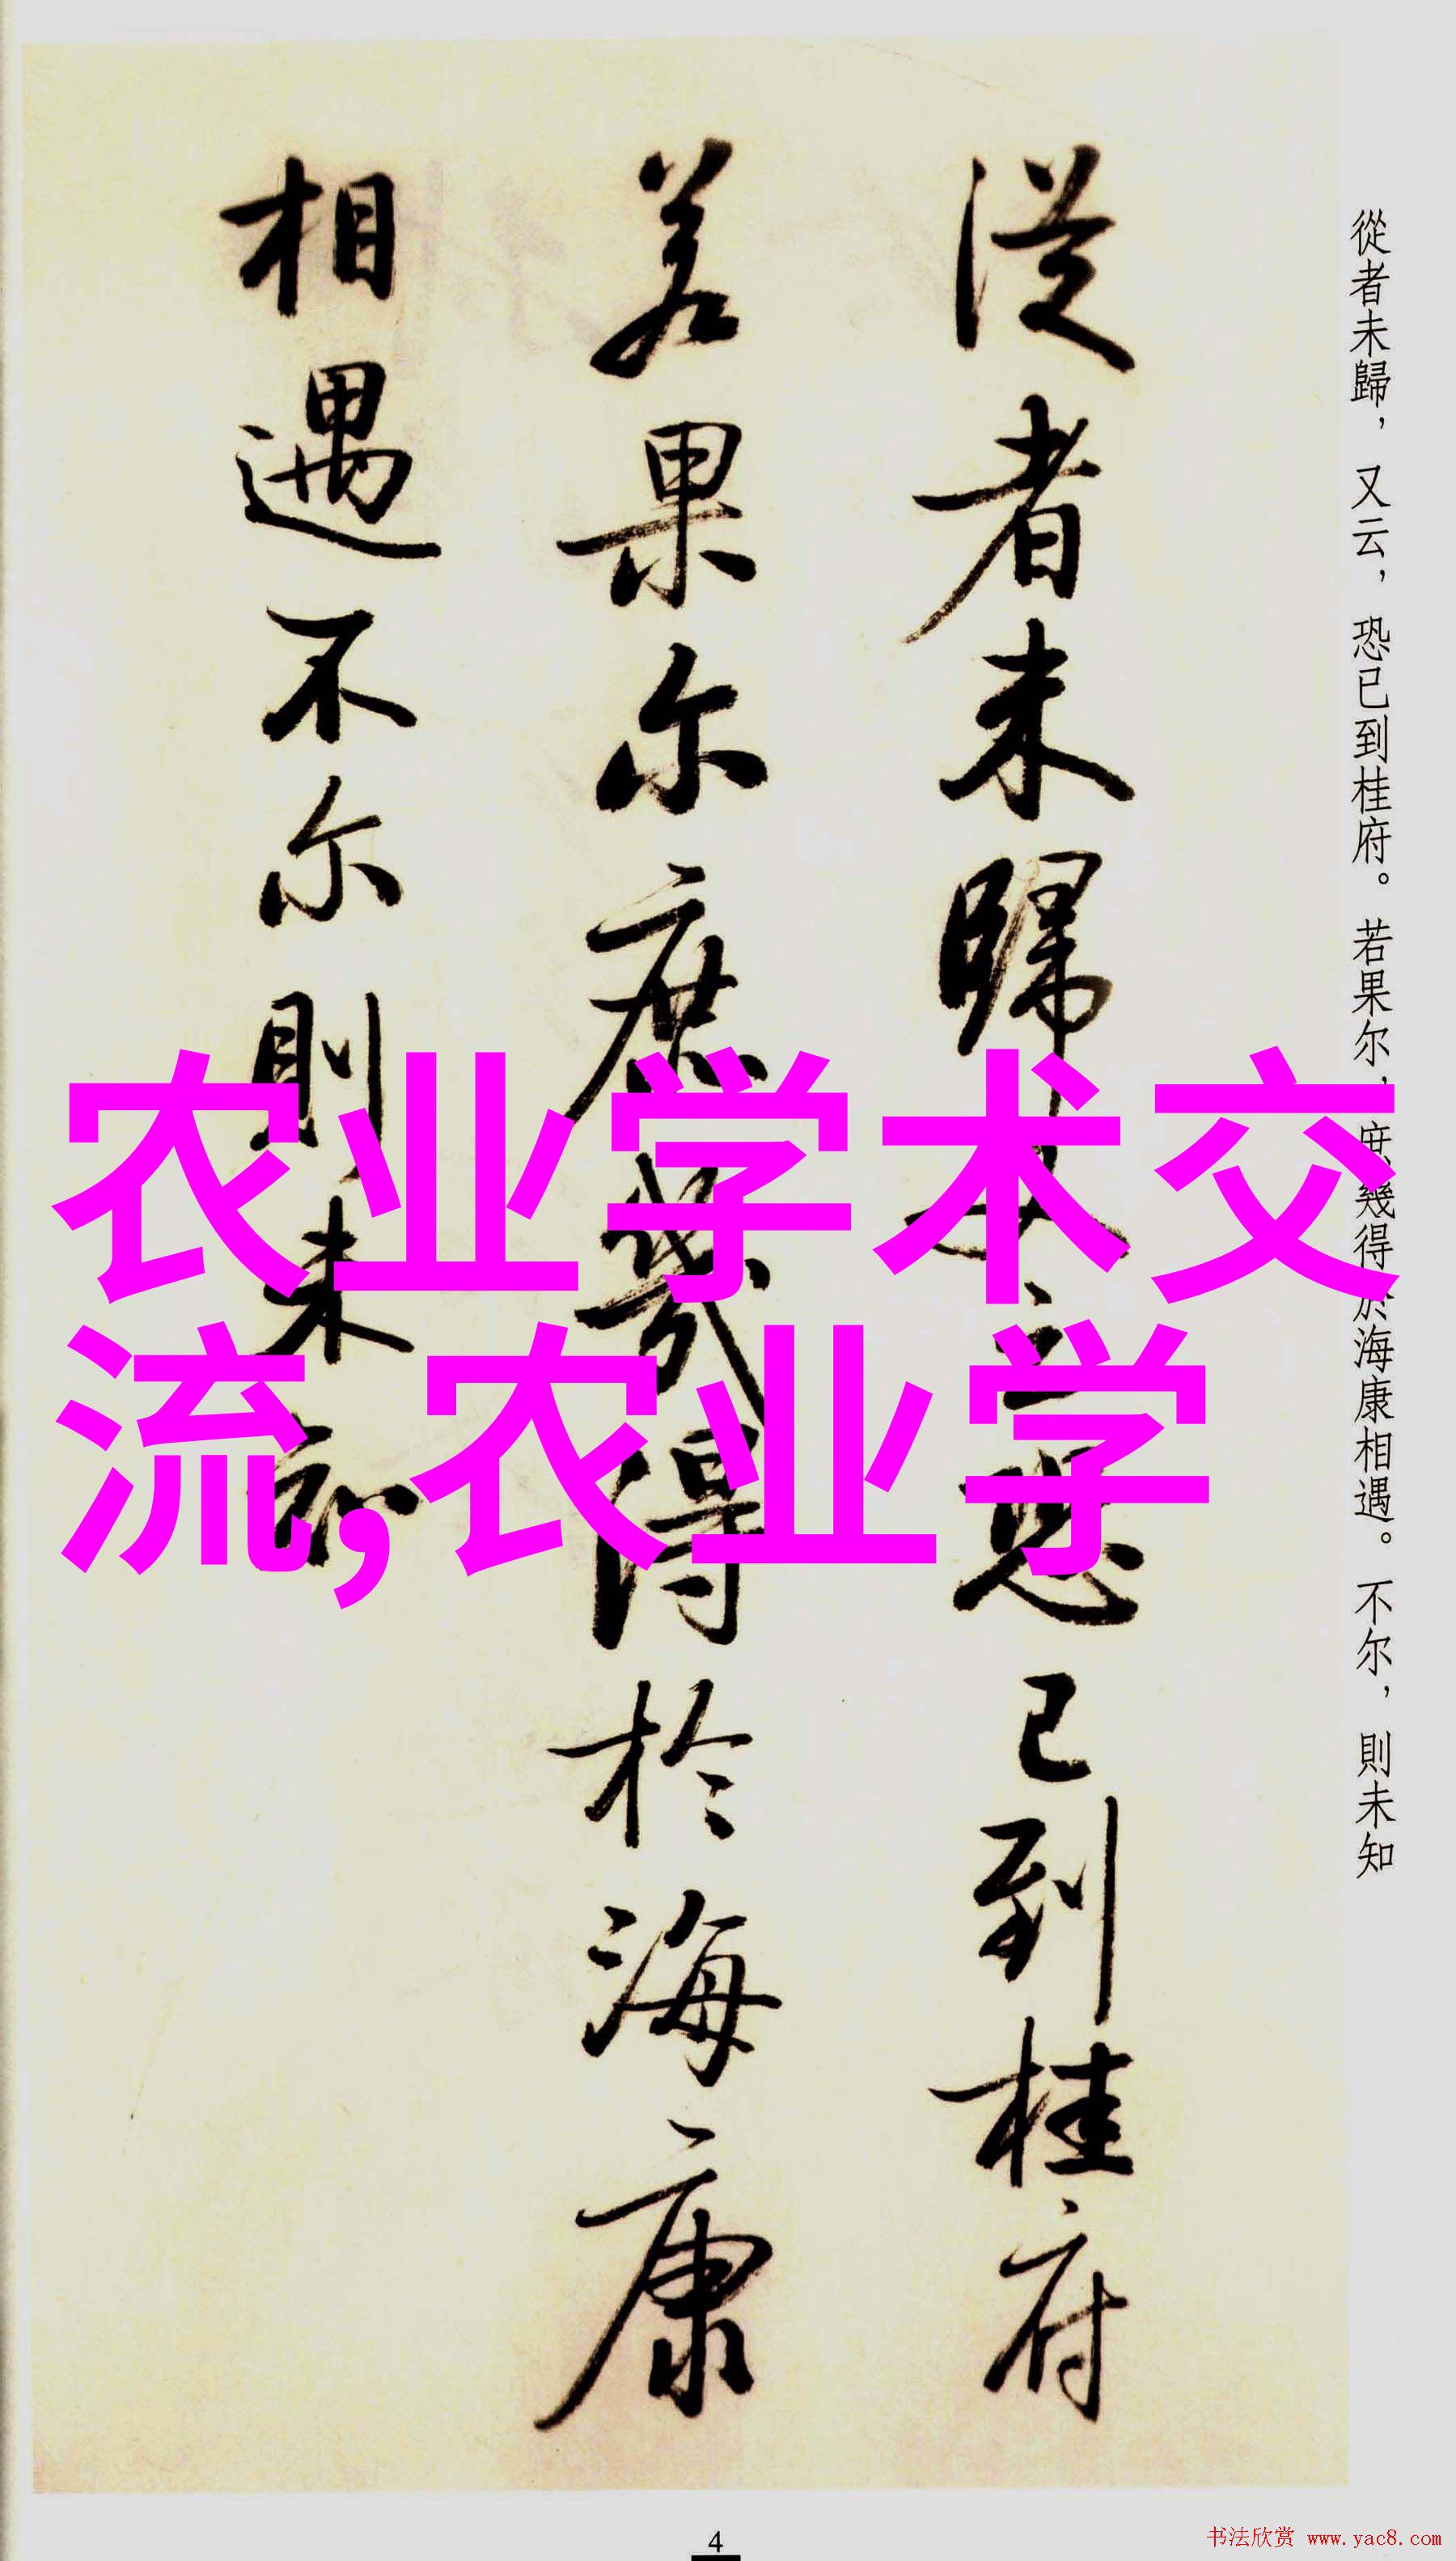 從者未歸，又云，恐已到桂府。若果尔，庶幾得於海康相遇。不尔，則未知
從者未歸又云恐已到桂府
若果尔庶幾得於海康
相遇不尔則未知
农业学术交
流,农业学
4
书法欣赏 www.yac8.com